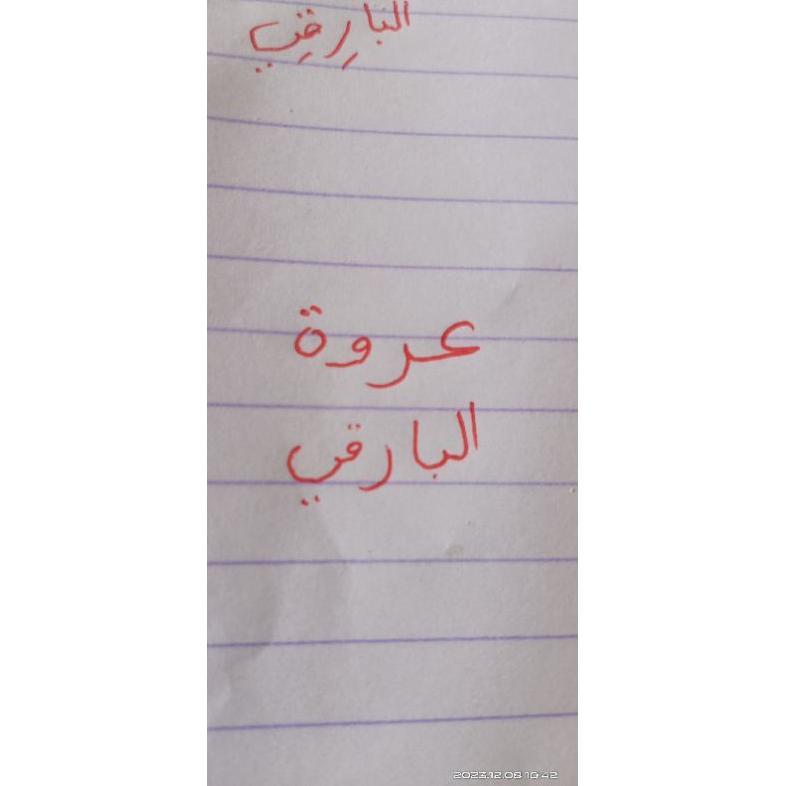 البارِقِي
عروة
البارقي
2023.12.06 10:42